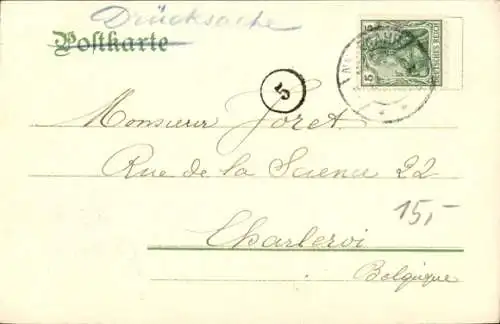 Drucksache
Postkarte
5
5
5
DEUTSCHES REICH
Monsieur Joret
Rue de la Science 22
15,-
Charleroi
Belgique